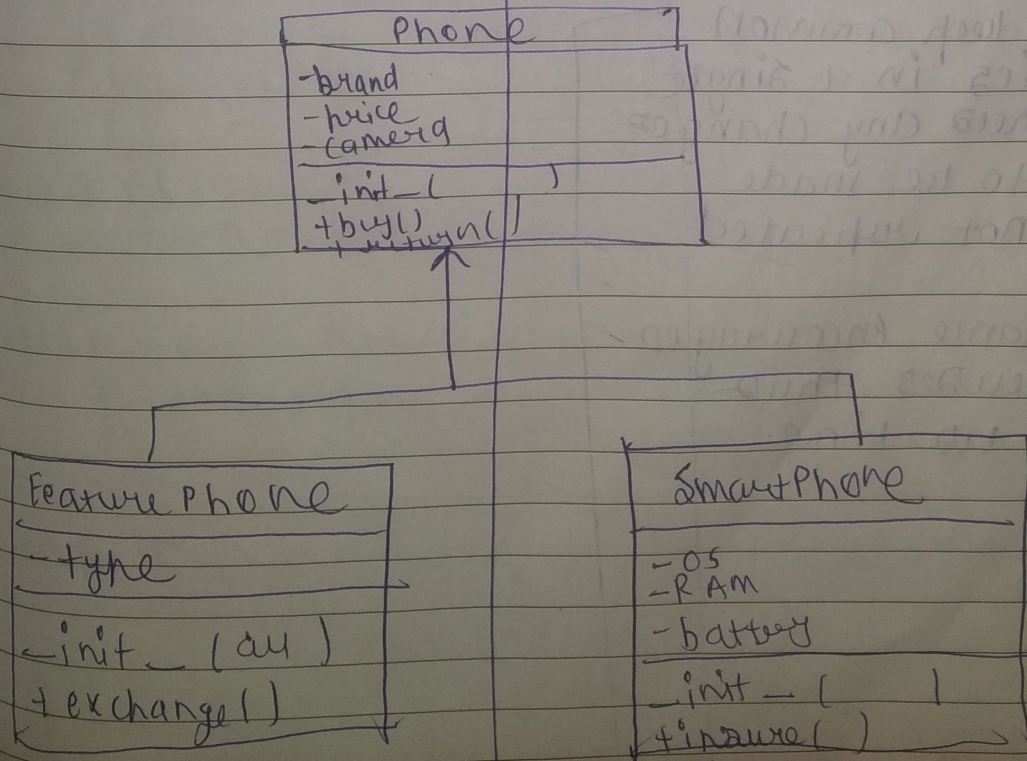 Phone
-brand
-price
-camera
_init_( )
+buy()
+return()
Feature Phone
-type
_init_ (all)
+exchange()
SmartPhone
-OS
-RAM
-battery
_init_( )
+insure()